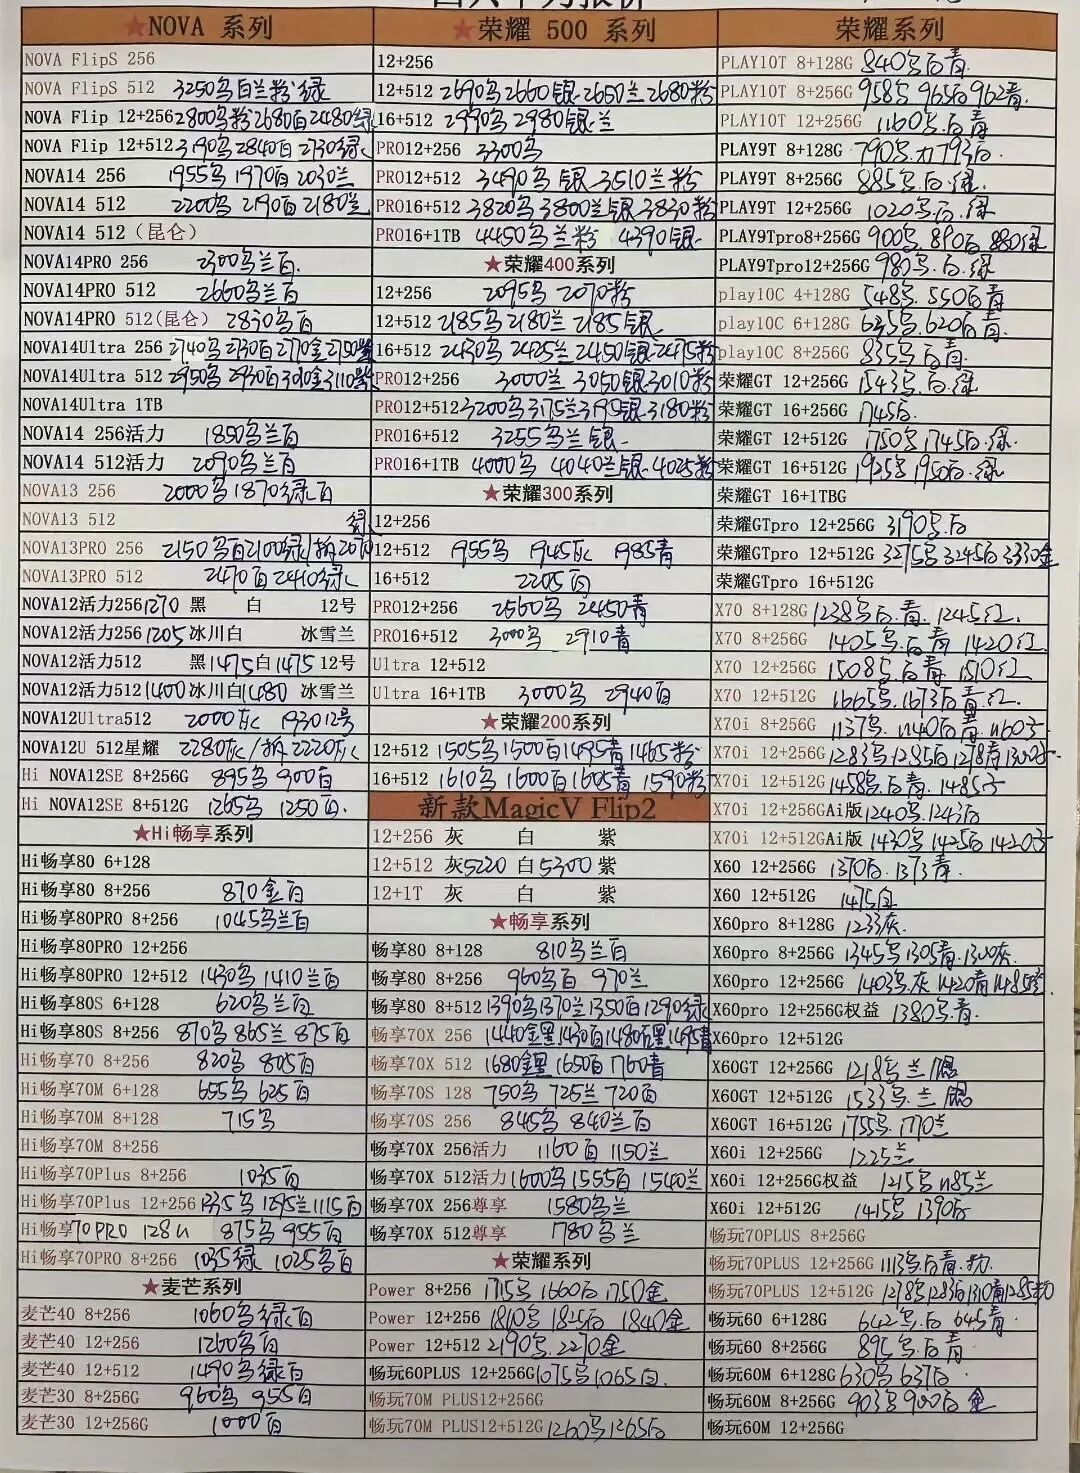 ★NOVA 系列
NOVA FlipS 256
NOVA FlipS 512 3250乌白兰粉绿
NOVA Flip 12+256 2800乌粉2680白2480绿
NOVA Flip 12+512 3190乌2840白2730绿
NOVA14 256 1955乌1970白2030兰
NOVA14 512 2200乌2190白2180兰
NOVA14 512（昆仑）
NOVA14PRO 256 2300乌兰白.
NOVA14PRO 512 2660乌兰白
NOVA14PRO 512(昆仑) 2830乌白
NOVA14Ultra 256 2740乌2730白2770金2750紫
NOVA14Ultra 512 2950乌2930白3010金3110紫
NOVA14Ultra 1TB
NOVA14 256活力 1850乌兰白
NOVA14 512活力 2090乌兰白
NOVA13 256 2000乌1870绿白
NOVA13 512 绿
NOVA13PRO 256 2150乌白2100绿
NOVA13PRO 512 2470白2410绿
NOVA12活力256 1270 黑 白 12号
NOVA12活力256 1205 冰川白 冰雪兰
NOVA12活力512 黑1475白1475 12号
NOVA12活力512 1400冰川白1480 冰雪兰
NOVA12Ultra512 2000灰 1930 12号
NOVA12U 512星耀 2280灰/拆2220灰
Hi NOVA12SE 8+256G 895乌900白
Hi NOVA12SE 8+512G 1265乌1250白.
★Hi畅享系列
Hi畅享80 6+128
Hi畅享80 8+256 870金白
Hi畅享80PRO 8+256 1045乌兰白
Hi畅享80PRO 12+256
Hi畅享80PRO 12+512 1430乌1410兰白
Hi畅享80S 6+128 620乌兰白
Hi畅享80S 8+256 870乌865兰875白
Hi畅享70 8+256 820乌 805白
Hi畅享70M 6+128 655乌 625白
Hi畅享70M 8+128 715乌
Hi畅享70M 8+256
Hi畅享70Plus 8+256 1035白
Hi畅享70Plus 12+256 1335乌1295兰1115白
Hi畅享70PRO 128 875乌 955白
Hi畅享70PRO 8+256 1035绿 1025乌白
★麦芒系列
麦芒40 8+256 1060乌绿白
麦芒40 12+256 1260乌白
麦芒40 12+512 1490乌绿白
麦芒30 8+256G 960乌 955白
麦芒30 12+256G 1000白
★荣耀 500 系列
12+256
12+512 2690乌2660银2650兰2680粉
16+512 2990乌2980银兰
PRO12+256 3300乌
PRO12+512 3490乌银3510兰粉
PRO16+512 3820乌3800兰银3830粉
PRO16+1TB 4450乌兰粉 4390银
★荣耀400系列
12+256 2095乌 2070粉
12+512 2185乌2180兰2185银
16+512 2430乌2425兰2450银2475粉
PRO12+256 3000兰3050银3010粉
PRO12+512 3200乌3175兰3195银3180粉
PRO16+512 3255乌兰银
PRO16+1TB 4000乌 4040兰银4025粉
★荣耀300系列
12+256
12+512 1955乌 1945灰 1985青
16+512 2205白
PRO12+256 2560乌 2450青
PRO16+512 3000乌 2910青
Ultra 12+512
Ultra 16+1TB 3000乌 2940白
★荣耀200系列
12+512 1505乌1500白1495青1465粉
16+512 1610乌1600白1605青1590粉
新款MagicV Flip2
12+256 灰 白 紫
12+512 灰5220 白5300紫
12+1T 灰 白 紫
★畅享系列
畅享80 8+128 810乌兰白
畅享80 8+256 960乌白 970兰
畅享80 8+512 1390乌1370兰1350白1290绿
畅享70X 256 1440金黑1430白1480白黑1495青
畅享70X 512 1680金黑1650白1760青
畅享70S 128 750乌 725兰 720白
畅享70S 256 845乌 840兰白
畅享70X 256活力 1160白 1150兰
畅享70X 512活力 1600乌1555白1540兰
畅享70X 256尊享 1580乌兰
畅享70X 512尊享 1780乌兰
★荣耀系列
Power 8+256 1715乌1660白1750金
Power 12+256 1810乌1825白 1840金
Power 12+512 2190乌.2270金
畅玩60PLUS 12+256G 1075乌1065白.
畅玩70M PLUS12+256G
畅玩70M PLUS12+512G 1260乌1265白
荣耀系列
PLAY10T 8+128G 840乌白青
PLAY10T 8+256G 958乌965白962青.
PLAY10T 12+256G 1160乌白青
PLAY9T 8+128G 790乌.793白.
PLAY9T 8+256G 885乌.白.绿.
PLAY9T 12+256G 1020乌白.绿
PLAY9Tpro8+256G 900乌.890白880绿
PLAY9Tpro12+256G 980乌.白.绿
play10C 4+128G 548乌.550白青
play10C 6+128G 635乌.620白青.
play10C 8+256G 835乌白青.
荣耀GT 12+256G 1543乌.白.绿
荣耀GT 16+256G 1745白.
荣耀GT 12+512G 1750乌1745白.绿.
荣耀GT 16+512G 1925乌1950白.绿
荣耀GT 16+1TBG
荣耀GTpro 12+256G 3190乌.白
荣耀GTpro 12+512G 3275乌3245白3330金
荣耀GTpro 16+512G
X70 8+128G 1238乌白.青.1245红
X70 8+256G 1405乌.白青 1420红
X70 12+256G 1508乌.白青 1510红
X70 12+512G 1665乌.1673白青.红.
X70i 8+256G 1137乌.1140白青1160子
X70i 12+256G 1283乌1285白1278青1300子.
X70i 12+512G 1458乌白青.1485子
X70i 12+256GAi版 1240乌.1243白
X70i 12+512GAi版 1430乌1425白1420子
X60 12+256G 1370白.1373青.
X60 12+512G 1475白
X60pro 8+128G 1233灰.
X60pro 8+256G 1345乌1305青.1300灰
X60pro 12+256G 1403乌.灰1420青1485金
X60pro 12+256G权益 1380乌.青.
X60pro 12+512G
X60GT 12+256G 1218乌兰银
X60GT 12+512G 1533乌.兰银
X60GT 16+512G 1755乌.1770兰
X60i 12+256G 1225兰
X60i 12+256G权益 1215乌1185兰
X60i 12+512G 1415乌1390白
畅玩70PLUS 8+256G
畅玩70PLUS 12+256G 1113乌白青.
畅玩70PLUS 12+512G 1278乌1283白1310青1285
畅玩60 6+128G 642乌.白 645青.
畅玩60 8+256G 895乌白青
畅玩60M 6+128G 630乌637白.
畅玩60M 8+256G 903乌900白金
畅玩60M 12+256G